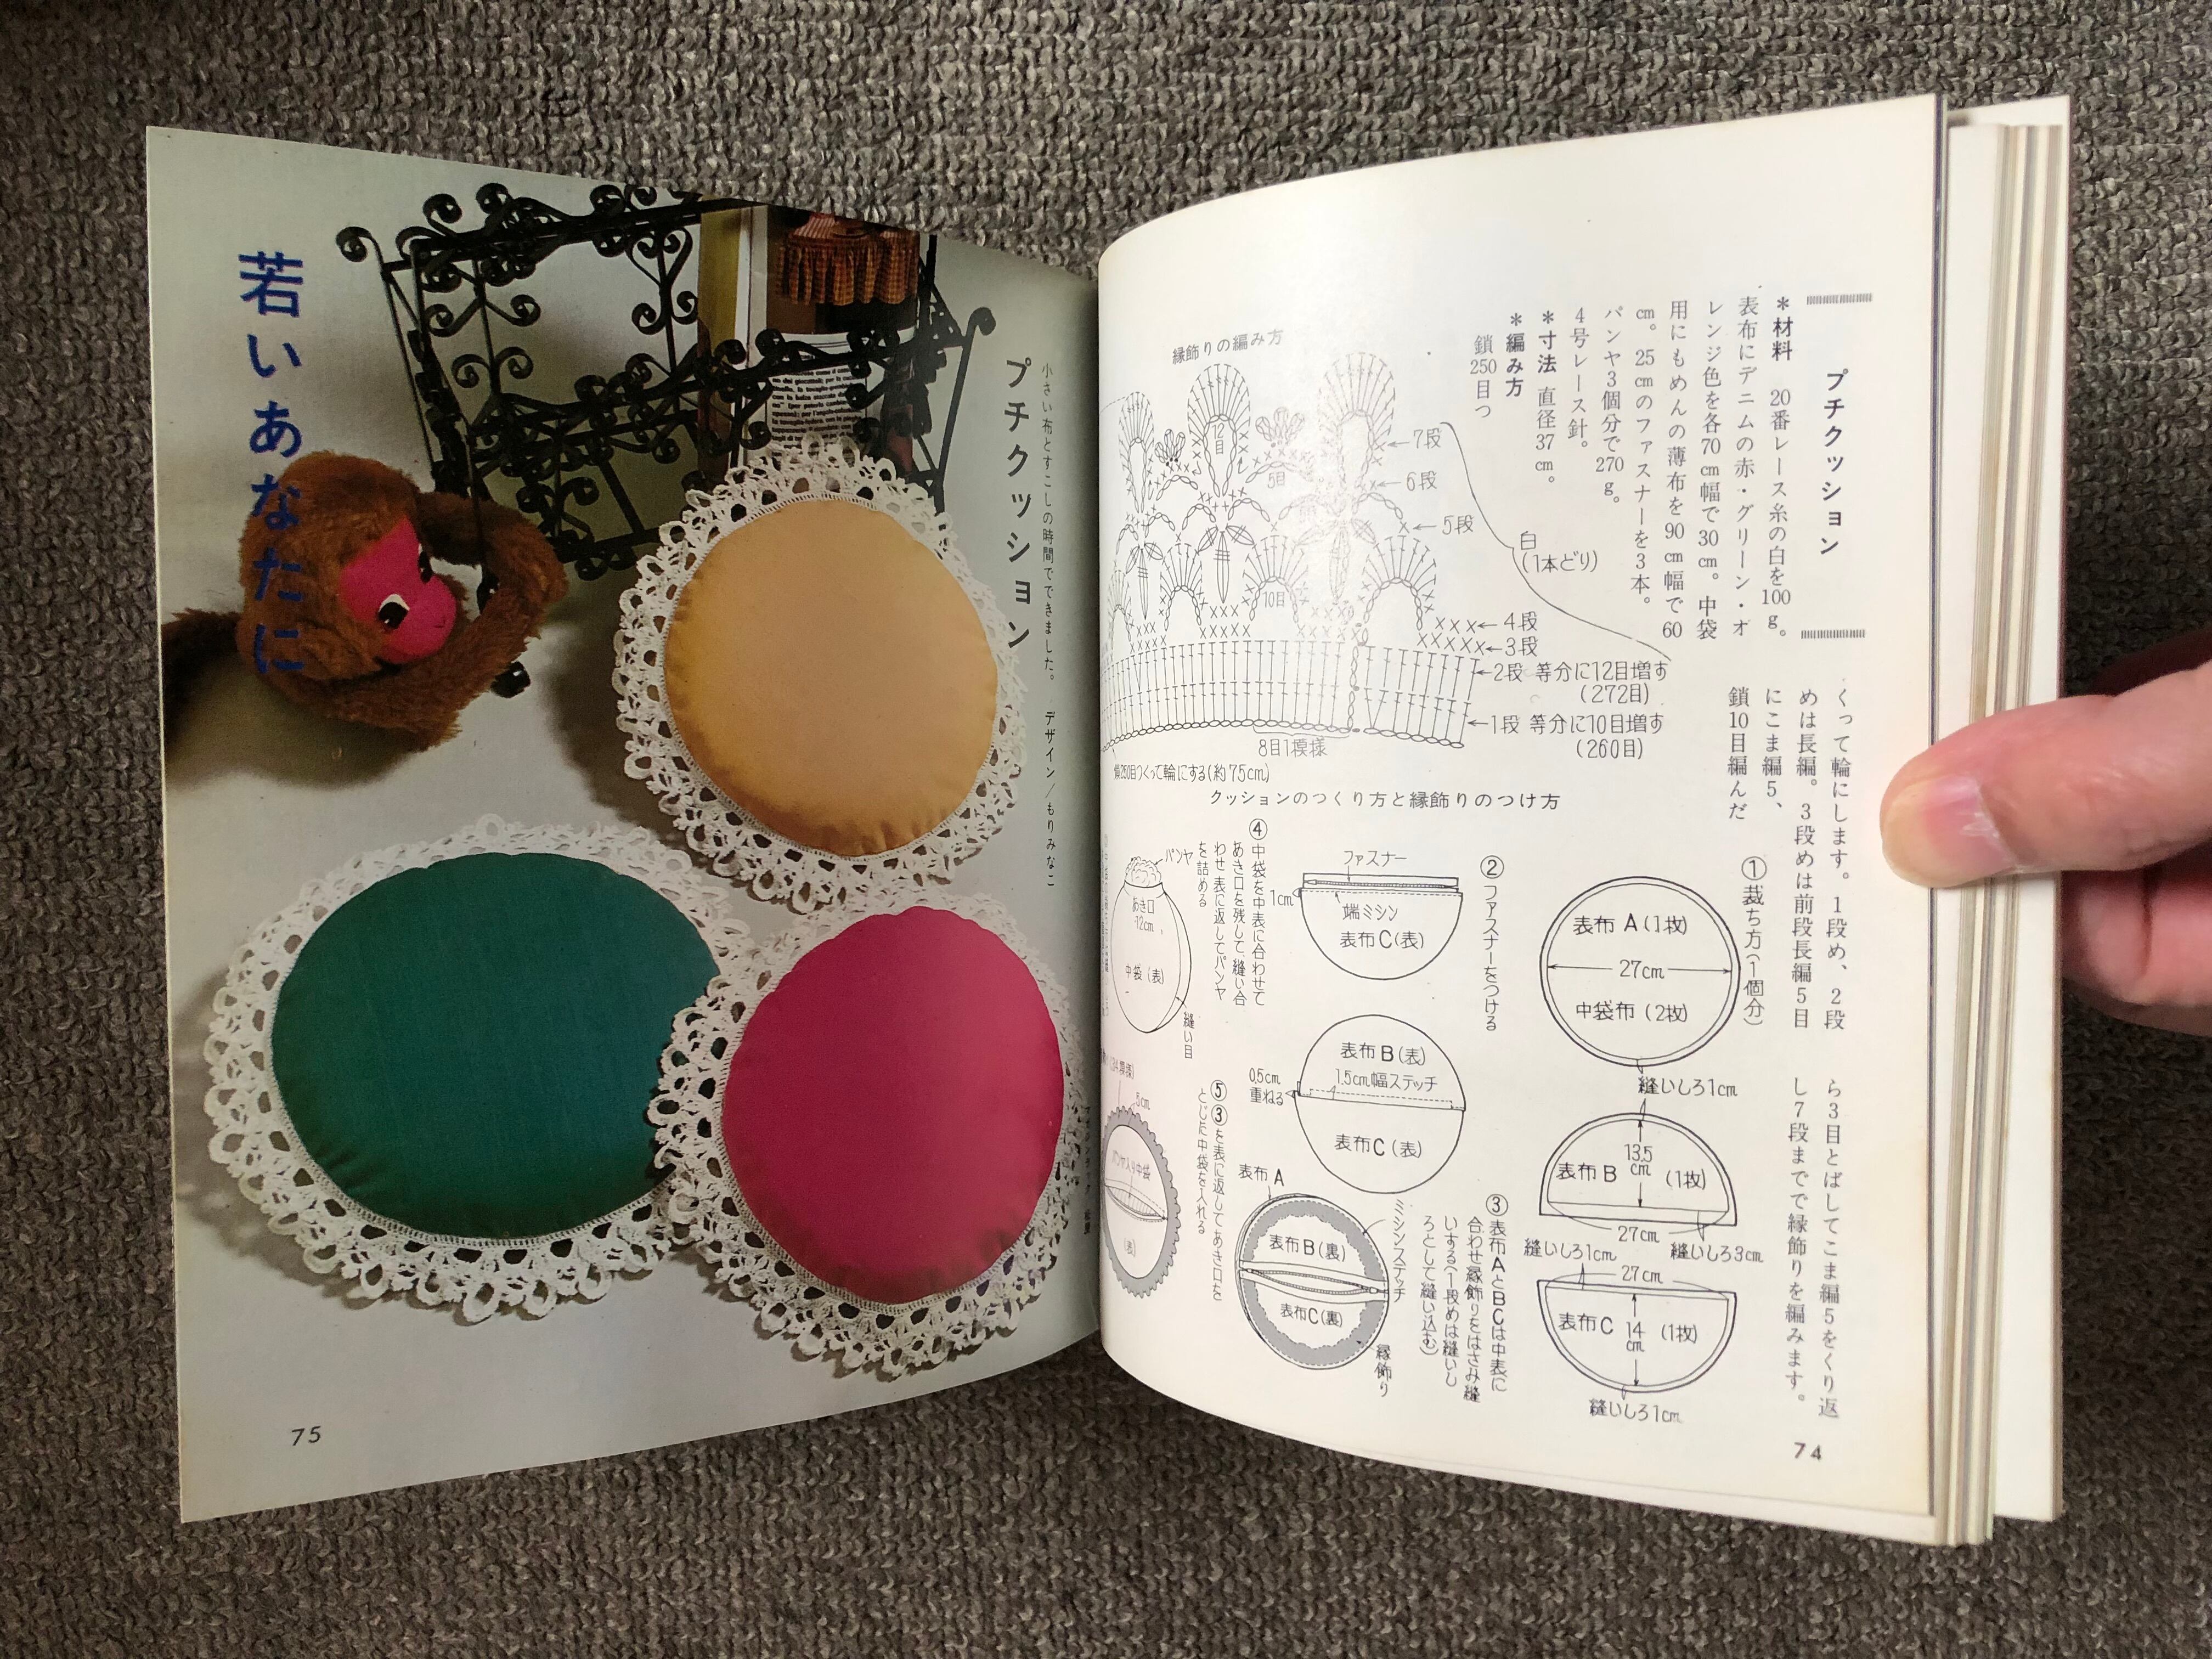 プチクッション
＊材料　20番レース糸の白を100g。
表布にデニムの赤・グリーン・オ
レンジ色を各70cm幅で30cm。中袋
用にもめんの薄布を90cm幅で60
cm。25cmのファスナーを3本。
パンヤ3個分で270g。
4号レース針。
＊寸法　直径37cm。
＊編み方
鎖250目つ
くって輪にします。1段め、2段
めは長編。3段めは前段長編5目
にこま編5、
鎖10目編んだ
ら3目とばしてこま編5をくり返
し7段までで縁飾りを編みます。
縁飾りの編み方
7段
6段
5段
白
(1本どり)
4段
3段
2段 等分に12目増す
(272目)
1段 等分に10目増す
(260目)
12目
5目
10目
8目1模様
鎖250目つくって輪にする(約75cm)
クッションのつくり方と縁飾りのつけ方
①裁ち方(1個分)
表布A(1枚)
27cm
中袋布(2枚)
縫いしろ1cm
13.5
cm
表布B (1枚)
27cm
縫いしろ1cm
縫いしろ3cm
27cm
表布C 14 (1枚)
cm
縫いしろ1cm
②ファスナーをつける
ファスナー
1cm
端ミシン
表布C(表)
表布B(表)
1.5cm幅ステッチ
0.5cm
重ねる
表布C(表)
③表布AとBCは中表に
合わせ縁飾りをはさみ縫
いする(一段めは縫いし
ろとして縫い込む)
表布A
ミシンステッチ
表布B(裏)
表布C(裏)
縁飾り
④中袋を中表に合わせて
あき口を残して、縫い合
わせ表に返してパンヤ
を詰める
パンヤ
あき口
12cm
中袋(表)
縫い目
⑤③を表に返してあき口を
とじた中袋を入れる
5cm
パンヤ入り中袋
(表)
74
プチクッション
小さい布とすこしの時間でできました。　デザイン／もりみなこ
若いあなたに
75